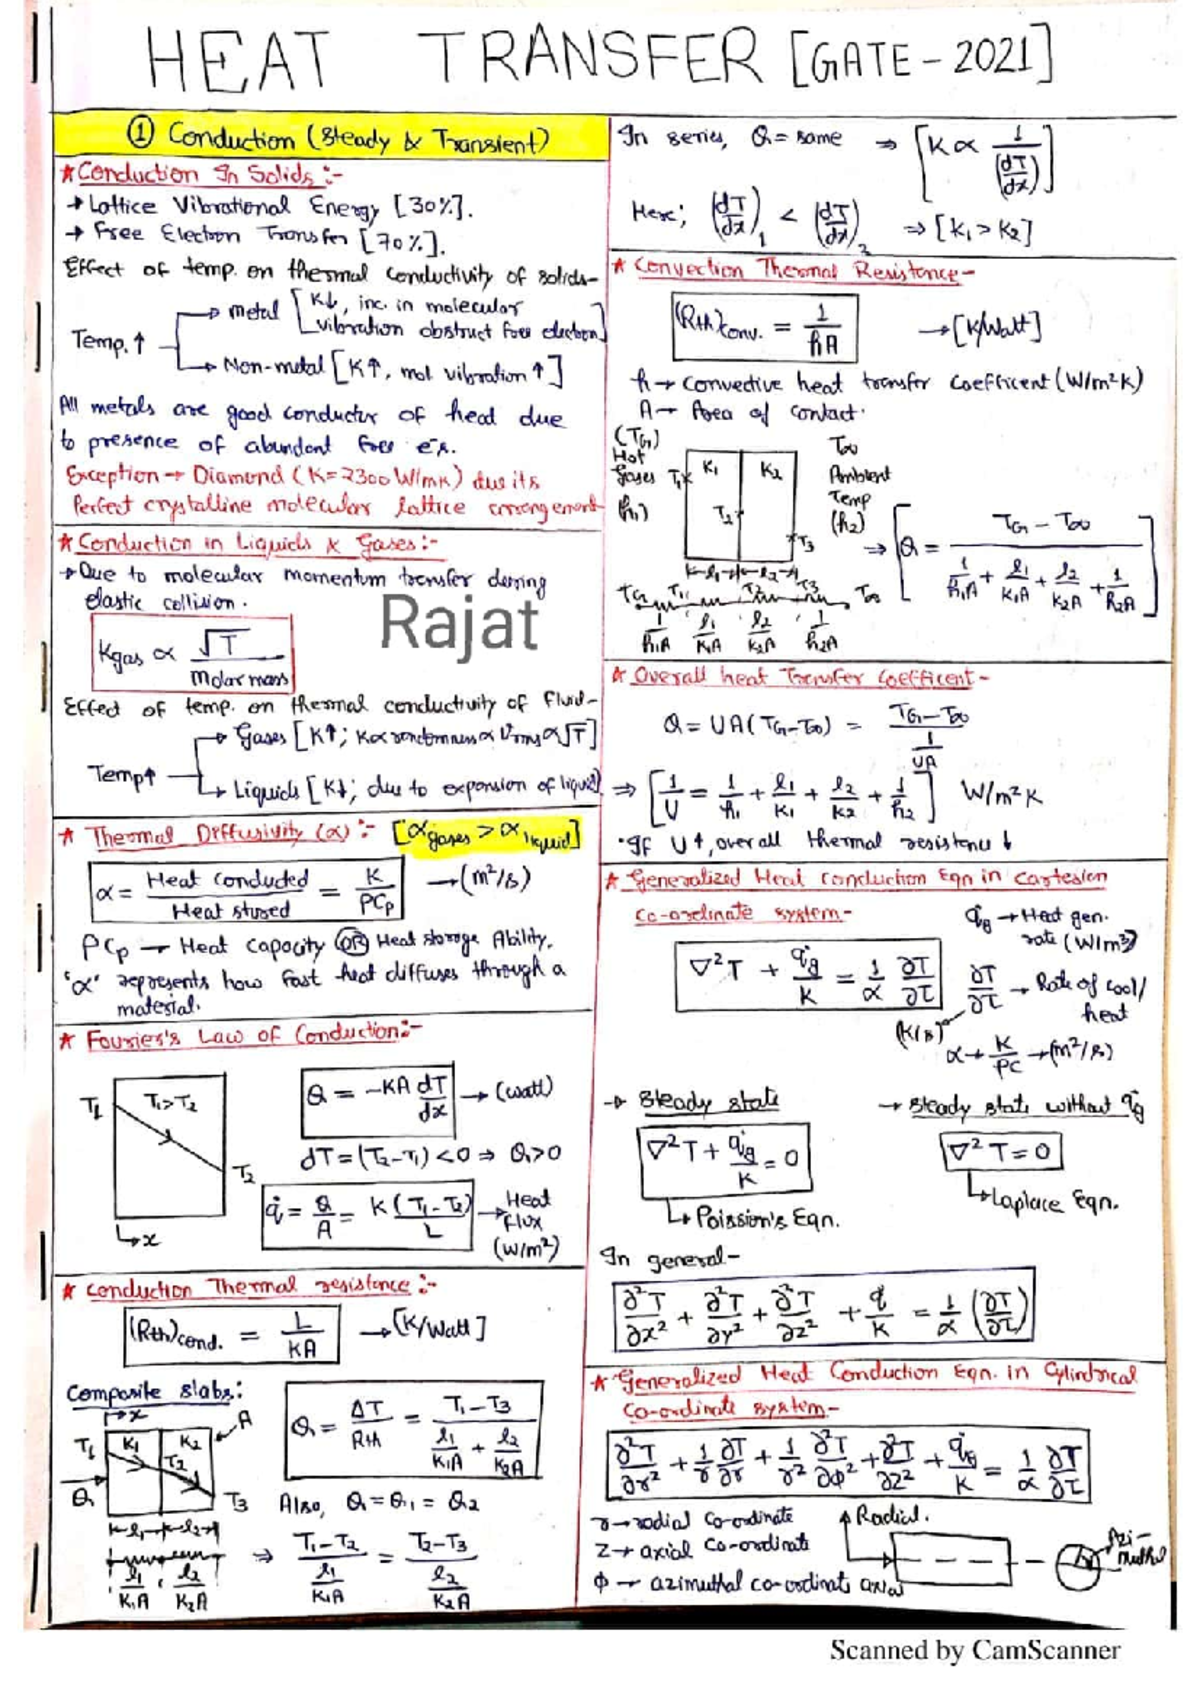 HEAT TRANSFER [GATE-2021]
① Conduction (Steady & Transient)
★ Conduction In Solids :-
→ Lattice Vibrational Energy [30%].
→ Free Electron Transfer [70%].
Effect of temp. on thermal conductivity of solids-
Temp.↑
→ metal [K↓, inc. in molecular
vibration obstruct free electron]
→ Non-metal [K↑, mol vibration ↑]
All metals are good conductor of head due
to presence of abundant free e⁻s.
Exception → Diamond (K=2300 W/mK) due its
Perfect crystalline molecular lattice arrangement
★ Conduction in Liquids & Gases:-
→ Due to molecular momentum transfer during
elastic collision.
Rajat
Kgas ∝ √T / molar mass
Effect of temp. on thermal conductivity of fluid-
Temp↑
→ Gases [K↑; K∝ randomness ∝ Vrms ∝ √T]
→ Liquids [K↓; due to expansion of liquid]
★ Thermal Diffusivity (α) :- [αgases > αliquid]
α = Heat conducted / Heat stored = K / ρCp → (m²/s)
ρCp → Heat capacity OR Heat storage Ability.
'α' represents how fast heat diffuses through a
material.
★ Fourier's Law of Conduction:-
T₁ T₁>T₂ T₂
→x
Q = -KA dT/dx → (watt)
dT = (T₂-T₁) < 0 ⇒ Q>0
q̇ = Q/A = K(T₁-T₂)/L → Heat flux (W/m²)
★ Conduction Thermal resistance :-
(Rth)cond. = L/KA → [K/Watt]
Composite slabs:
→x A
T₁ K₁ K₂ T₂ T₃
Q
l₁ l₂
l₁/K₁A , l₂/K₂A
Q = ΔT/Rth = (T₁-T₃) / (l₁/K₁A + l₂/K₂A)
Also, Q = Q₁ = Q₂
⇒ (T₁-T₂) / (l₁/K₁A) = (T₂-T₃) / (l₂/K₂A)
In series, Q = same ⇒ [K ∝ 1/(dT/dx)]
Here; (dT/dx)₁ < (dT/dx)₂ ⇒ [K₁ > K₂]
★ Convection Thermal Resistance-
(Rth)conv. = 1/hA → [K/Watt]
h → convective heat transfer coefficent (W/m²K)
A → Area of contact.
(TG)
Hot
Gases
(h₁)
T₁ K₁ K₂ T₂ T₃
T∞
Ambient
Temp
(h₂)
l₁ l₂
TG T₁ T₂ T₃ T∞
1/h₁A l₁/K₁A l₂/K₂A 1/h₂A
⇒ [Q = (TG - T∞) / (1/h₁A + l₁/K₁A + l₂/K₂A + 1/h₂A)]
★ Overall heat Transfer Coefficent-
Q = UA(TG-T∞) = (TG-T∞) / (1/UA)
⇒ [1/U = 1/h₁ + l₁/K₁ + l₂/K₂ + 1/h₂] W/m²K
• If U↑, overall thermal resistence ↓
★ Generalized Heat conduction Eqn in cartesian
co-ordinate system-
∇²T + q̇g/K = 1/α ∂T/∂τ
q̇g → Heat gen. rate (W/m³)
∂T/∂τ → Rate of cool/heat
(K/s)
α → K/ρC → (m²/s)
→ Steady state
∇²T + q̇g/K = 0
↳ Poission's Eqn.
→ Steady state without q̇g
∇²T = 0
↳ Laplace Eqn.
In general-
∂²T/∂x² + ∂²T/∂y² + ∂²T/∂z² + q̇/K = 1/α (∂T/∂τ)
★ Generalized Heat Conduction Eqn. in Cylindrical
co-ordinate system-
∂²T/∂r² + 1/r ∂T/∂r + 1/r² ∂²T/∂ϕ² + ∂²T/∂z² + q̇g/K = 1/α ∂T/∂τ
r → radial co-ordinate
z → axial co-ordinate
ϕ → azimuthal co-ordinate
Radial.
axial
Azi-
muthal
Scanned by CamScanner